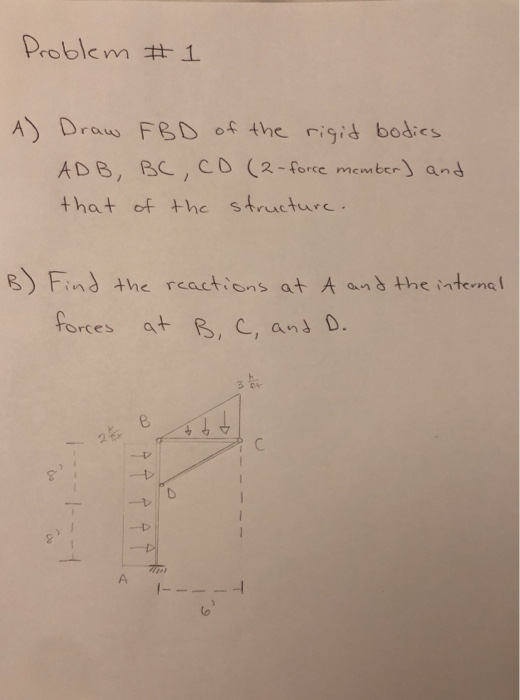 Problem # 1
A) Draw FBD of the rigid bodies
ADB, BC, CD (2-force member) and
that of the structure.
B) Find the reactions at A and the internal
forces at B, C, and D.
3 k/ft
2 k/ft
B
C
8'
D
8'
A
6'